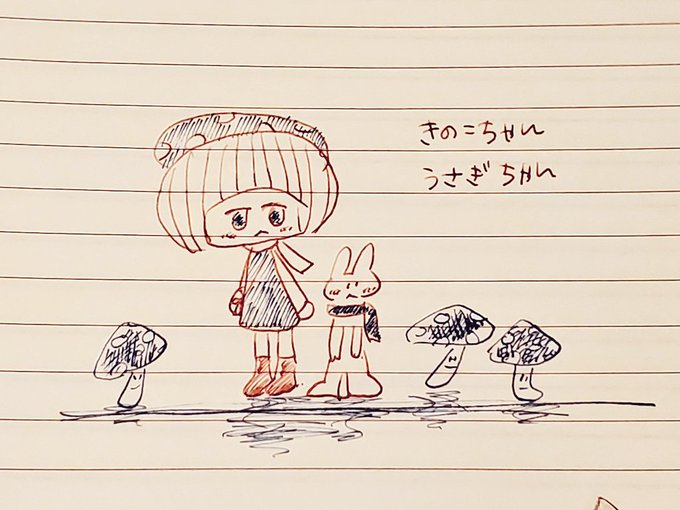 きのこちゃん
うさぎちゃん